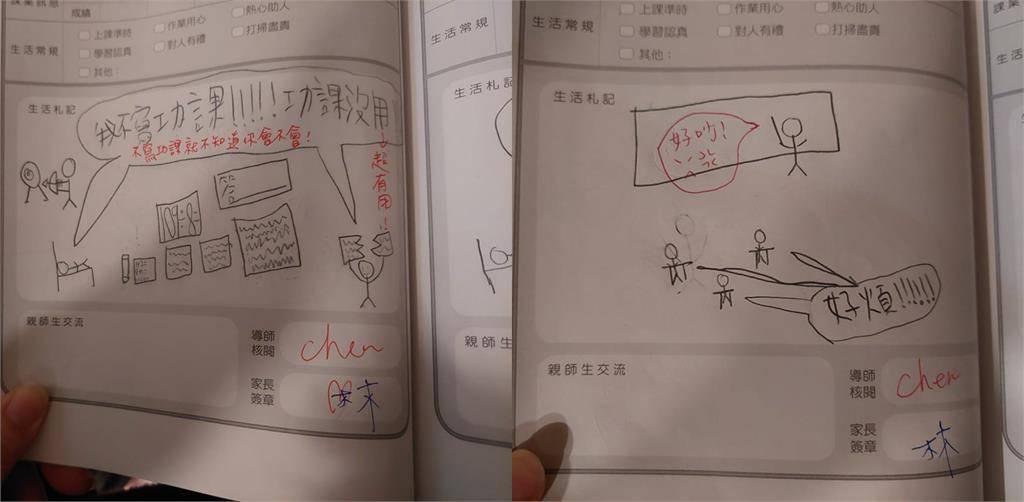 課業訊息
成績
生活常規
上課準時
作業用心
熱心助人
學習認真
對人有禮
打掃盡責
其他：
生活札記
我不寫功課!!!!!功課沒用
不寫功課就不知道你會不會!
→超有用!
答
親師生交流
導師
核閱
chen
家長
簽章
林
生活常規
生活札
親師生
上課準時
作業用心
熱心助人
生活常規
學習認真
對人有禮
打掃盡責
其他：
生活札記
好吵!
好煩!!!!!
親師生交流
導師
核閱
chen
家長
簽章
林